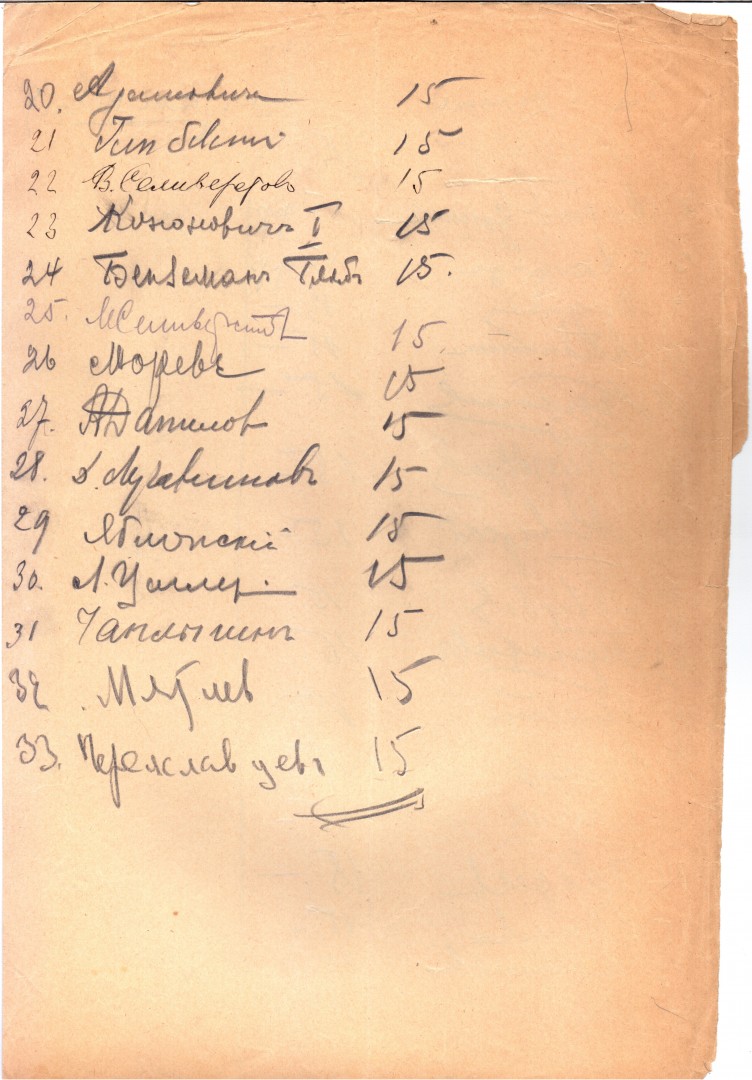 20. Адамович 15
21 15
22 В. Селиверстов 15
23 Кононовичъ I 15
24 Бенземанъ Глѣбъ 15.
25. М Селиверстов 15
26 Моревъ 15
27. А Данилов 15
28. 15
29 Яблонскій 15
30. Л. Уллер. 15
31 Чаплыгинъ 15
32 Мятлев 15
33. Переяславцевъ 15